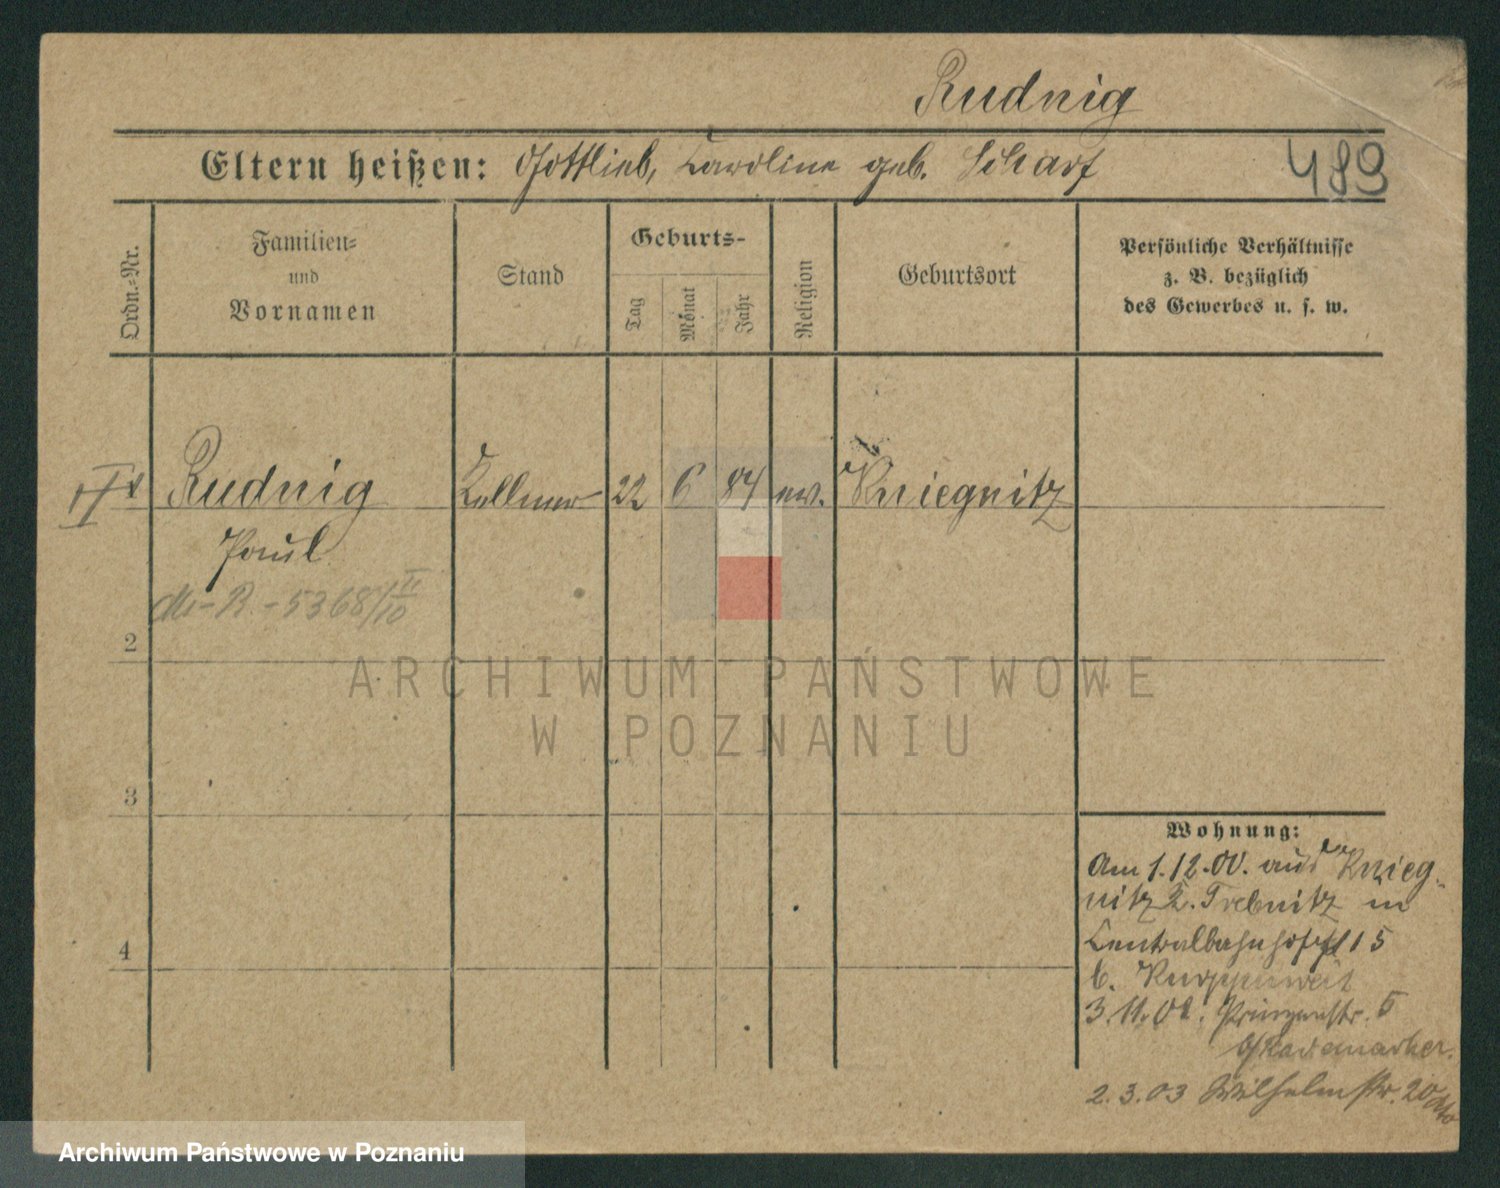 Rudnig
Eltern heißen: Gottlieb, Caroline geb. Scharf
489
Ordn.-Nr.
Familien-
und
Vornamen
Stand
Geburts-
Tag
Monat
Jahr
Religion
Geburtsort
Persönliche Verhältnisse
z. B. bezüglich
des Gewerbes u. s. w.
Rudnig
Paul
Kellner
22
6
84
ev.
Kniegnitz
M-R-5368/10
2
3
4
ARCHIWUM PAŃSTWOWE
W POZNANIU
Wohnung:
Am 1.12.00. aus Knieg-
nitz K. Trebnitz in
Centralbahnhofspl 15
b.
3.11.02. Prinzenstr. 5
2.3.03 Wilhelmstr. 20
Archiwum Państwowe w Poznaniu